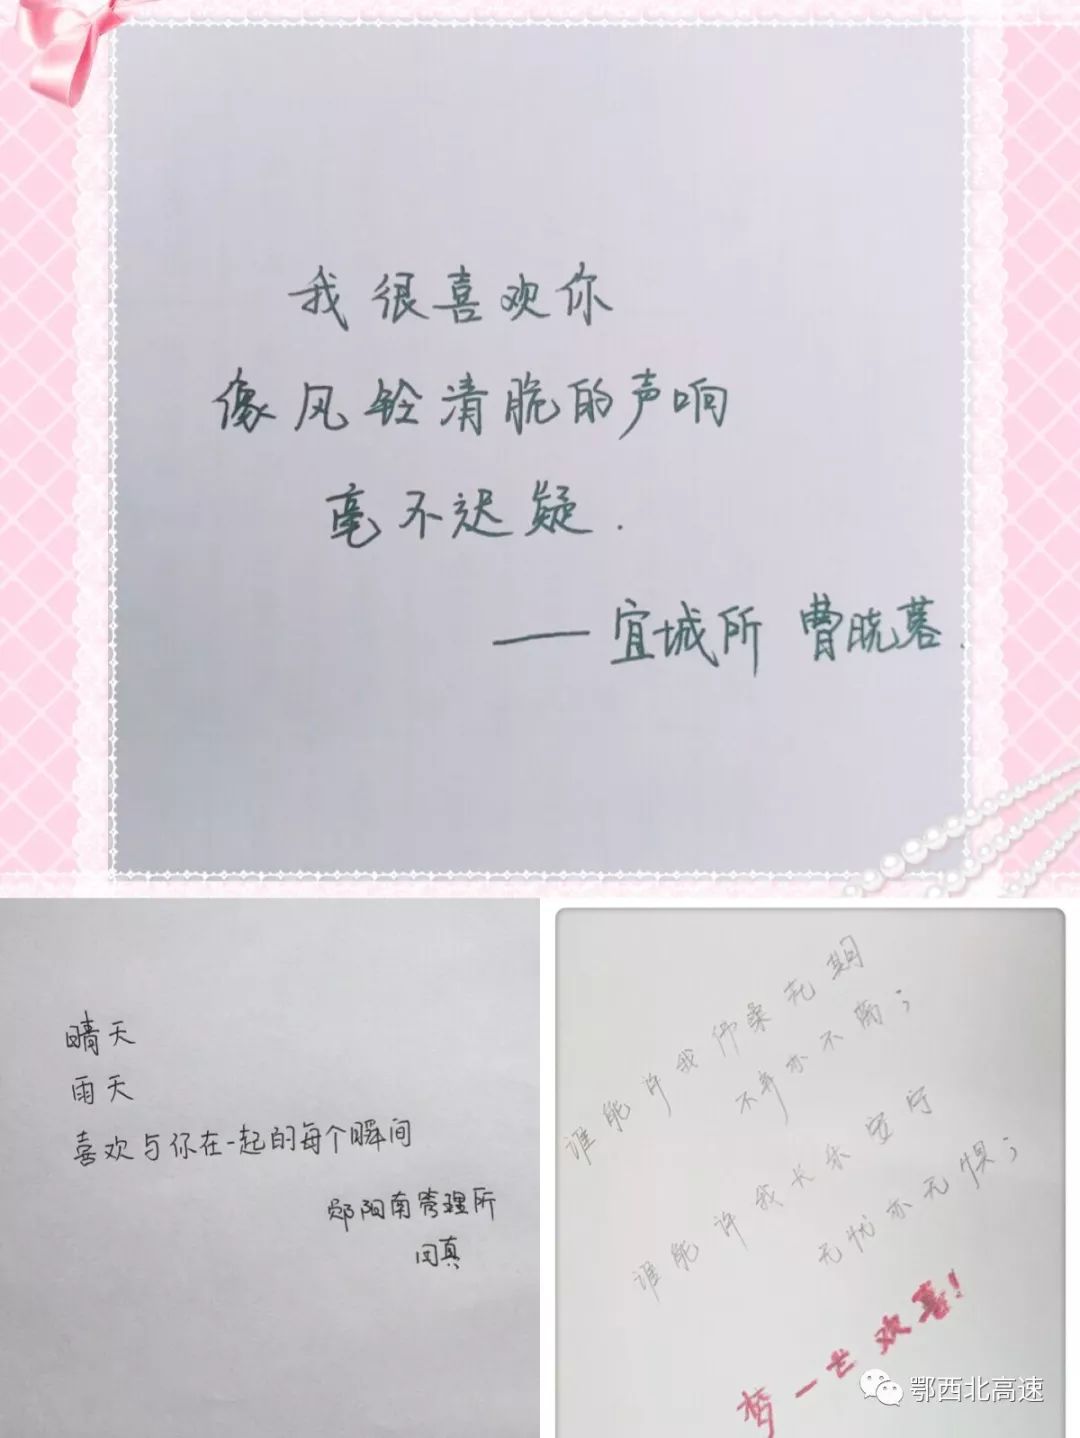 我很喜欢你
像风铃清脆的声响
毫不迟疑.
——宜城所 曹晓蓉.
晴天
雨天
喜欢与你在一起的每个瞬间
郧阳南管理所
闵真
谁能许我佛桑花期
不弃亦不离；
谁能许我长乐安宁
无忧亦无惧；
梦一世欢喜！
鄂西北高速